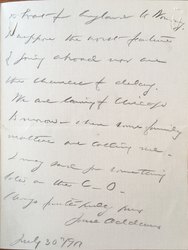 to hast for England to Norway
I suppose the worst features
of going abroad now are
the chances of delay.
We are leaving Chicago
tomorrow - where some family
matters are calling me -
I may send for something
later on the C - O -
Always faithfully yours
Jane Addams
July 30" 1901